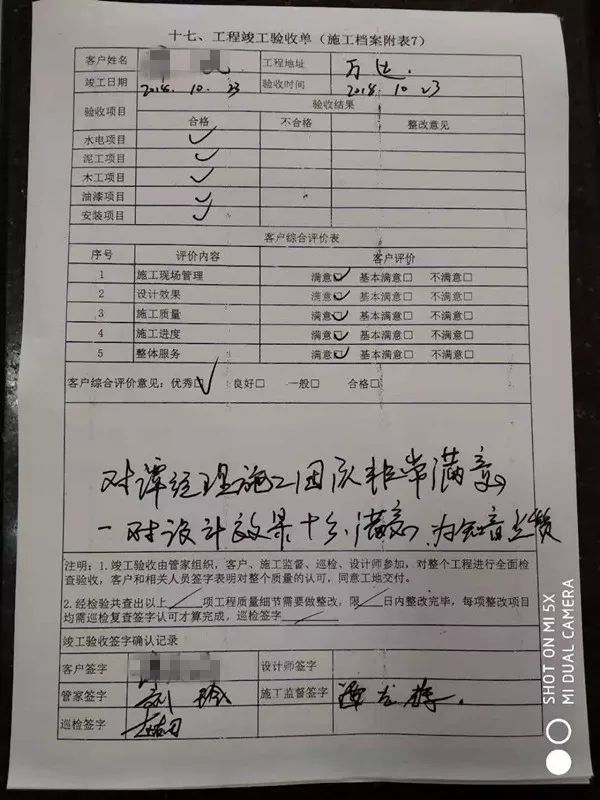 十七、工程竣工验收单（施工档案附表7）
客户姓名 工程地址 万达
竣工日期 2018.10.23 验收时间 2018.10 23
验收项目 验收结果
合格 不合格 整改意见
水电项目 ✓
泥工项目 ✓
木工项目 ✓
油漆项目 ✓
安装项目 ✓
客户综合评价表
序号 评价内容 客户评价
1 施工现场管理 满意☑ 基本满意□ 不满意□
2 设计效果 满意☑ 基本满意□ 不满意□
3 施工质量 满意☑ 基本满意□ 不满意□
4 施工进度 满意☑ 基本满意□ 不满意□
5 整体服务 满意☑ 基本满意□ 不满意□
客户综合评价意见：优秀☑ 良好□ 一般□ 合格□
对谭经理施工团队非常满意
对设计效果十分满意，为知音点赞
注明：1.竣工验收由管家组织，客户、施工监督、巡检、设计师参加，对整个工程进行全面检
查验收，客户和相关人员签字表明对整个质量的认可，同意工地交付。
2.经检验共查出以上 项工程质量细节需要做整改，限 日内整改完毕，每项整改项目
均需巡检复查签字认可才算完成，巡检签字
竣工验收签字确认记录
客户签字 设计师签字
管家签字 施工监督签字
巡检签字
SHOT ON MI 5X
MI DUAL CAMERA